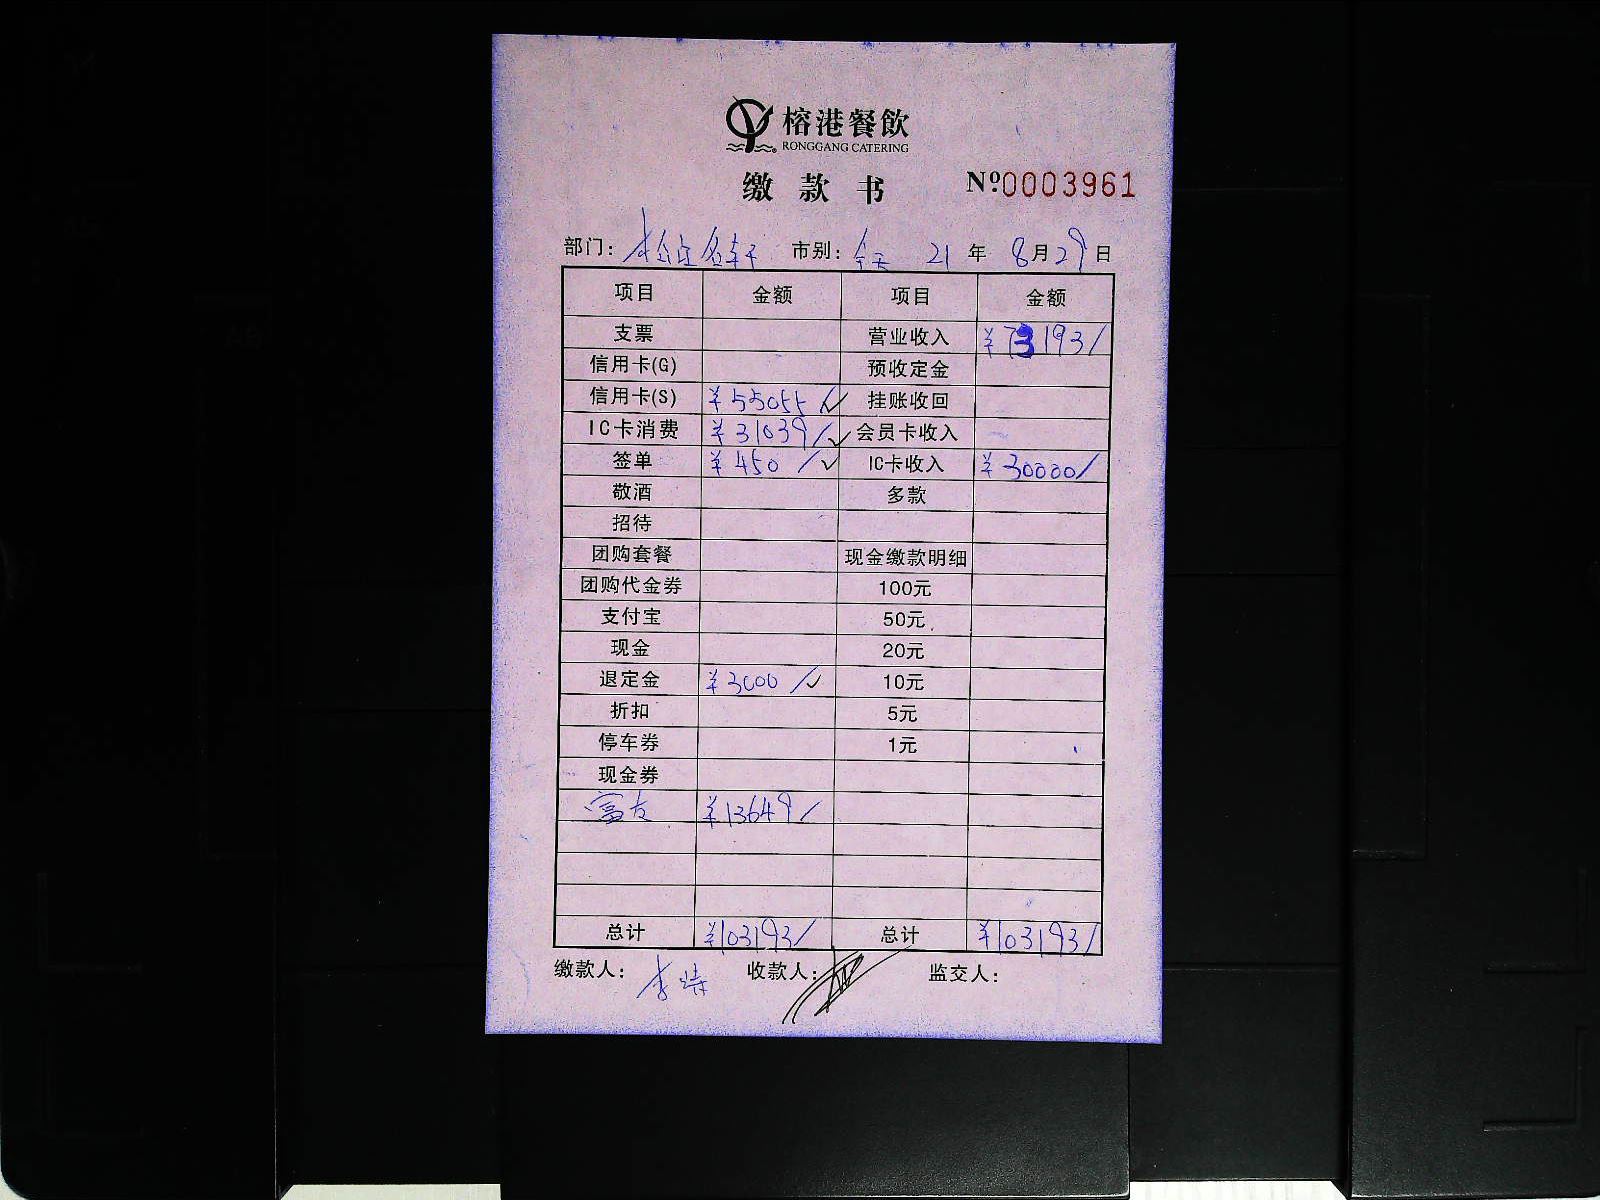 榕港餐飲
RONGGANG CATERING
缴款书 Nº0003961
部门: 市别: 全天 21 年 8月29日
项目 金额 项目 金额
支票 营业收入 ¥73193/
信用卡(G) 预收定金
信用卡(S) ¥55055/ 挂账收回
IC卡消费 ¥31039/ 会员卡收入
签单 ¥450/ IC卡收入 ¥30000/
敬酒 多款
招待
团购套餐 现金缴款明细
团购代金券 100元
支付宝 50元
现金 20元
退定金 ¥3000/ 10元
折扣 5元
停车券 1元
现金券
富友 ¥13649/
总计 ¥103193/ 总计 ¥103193/
缴款人: 李 收款人: 监交人: